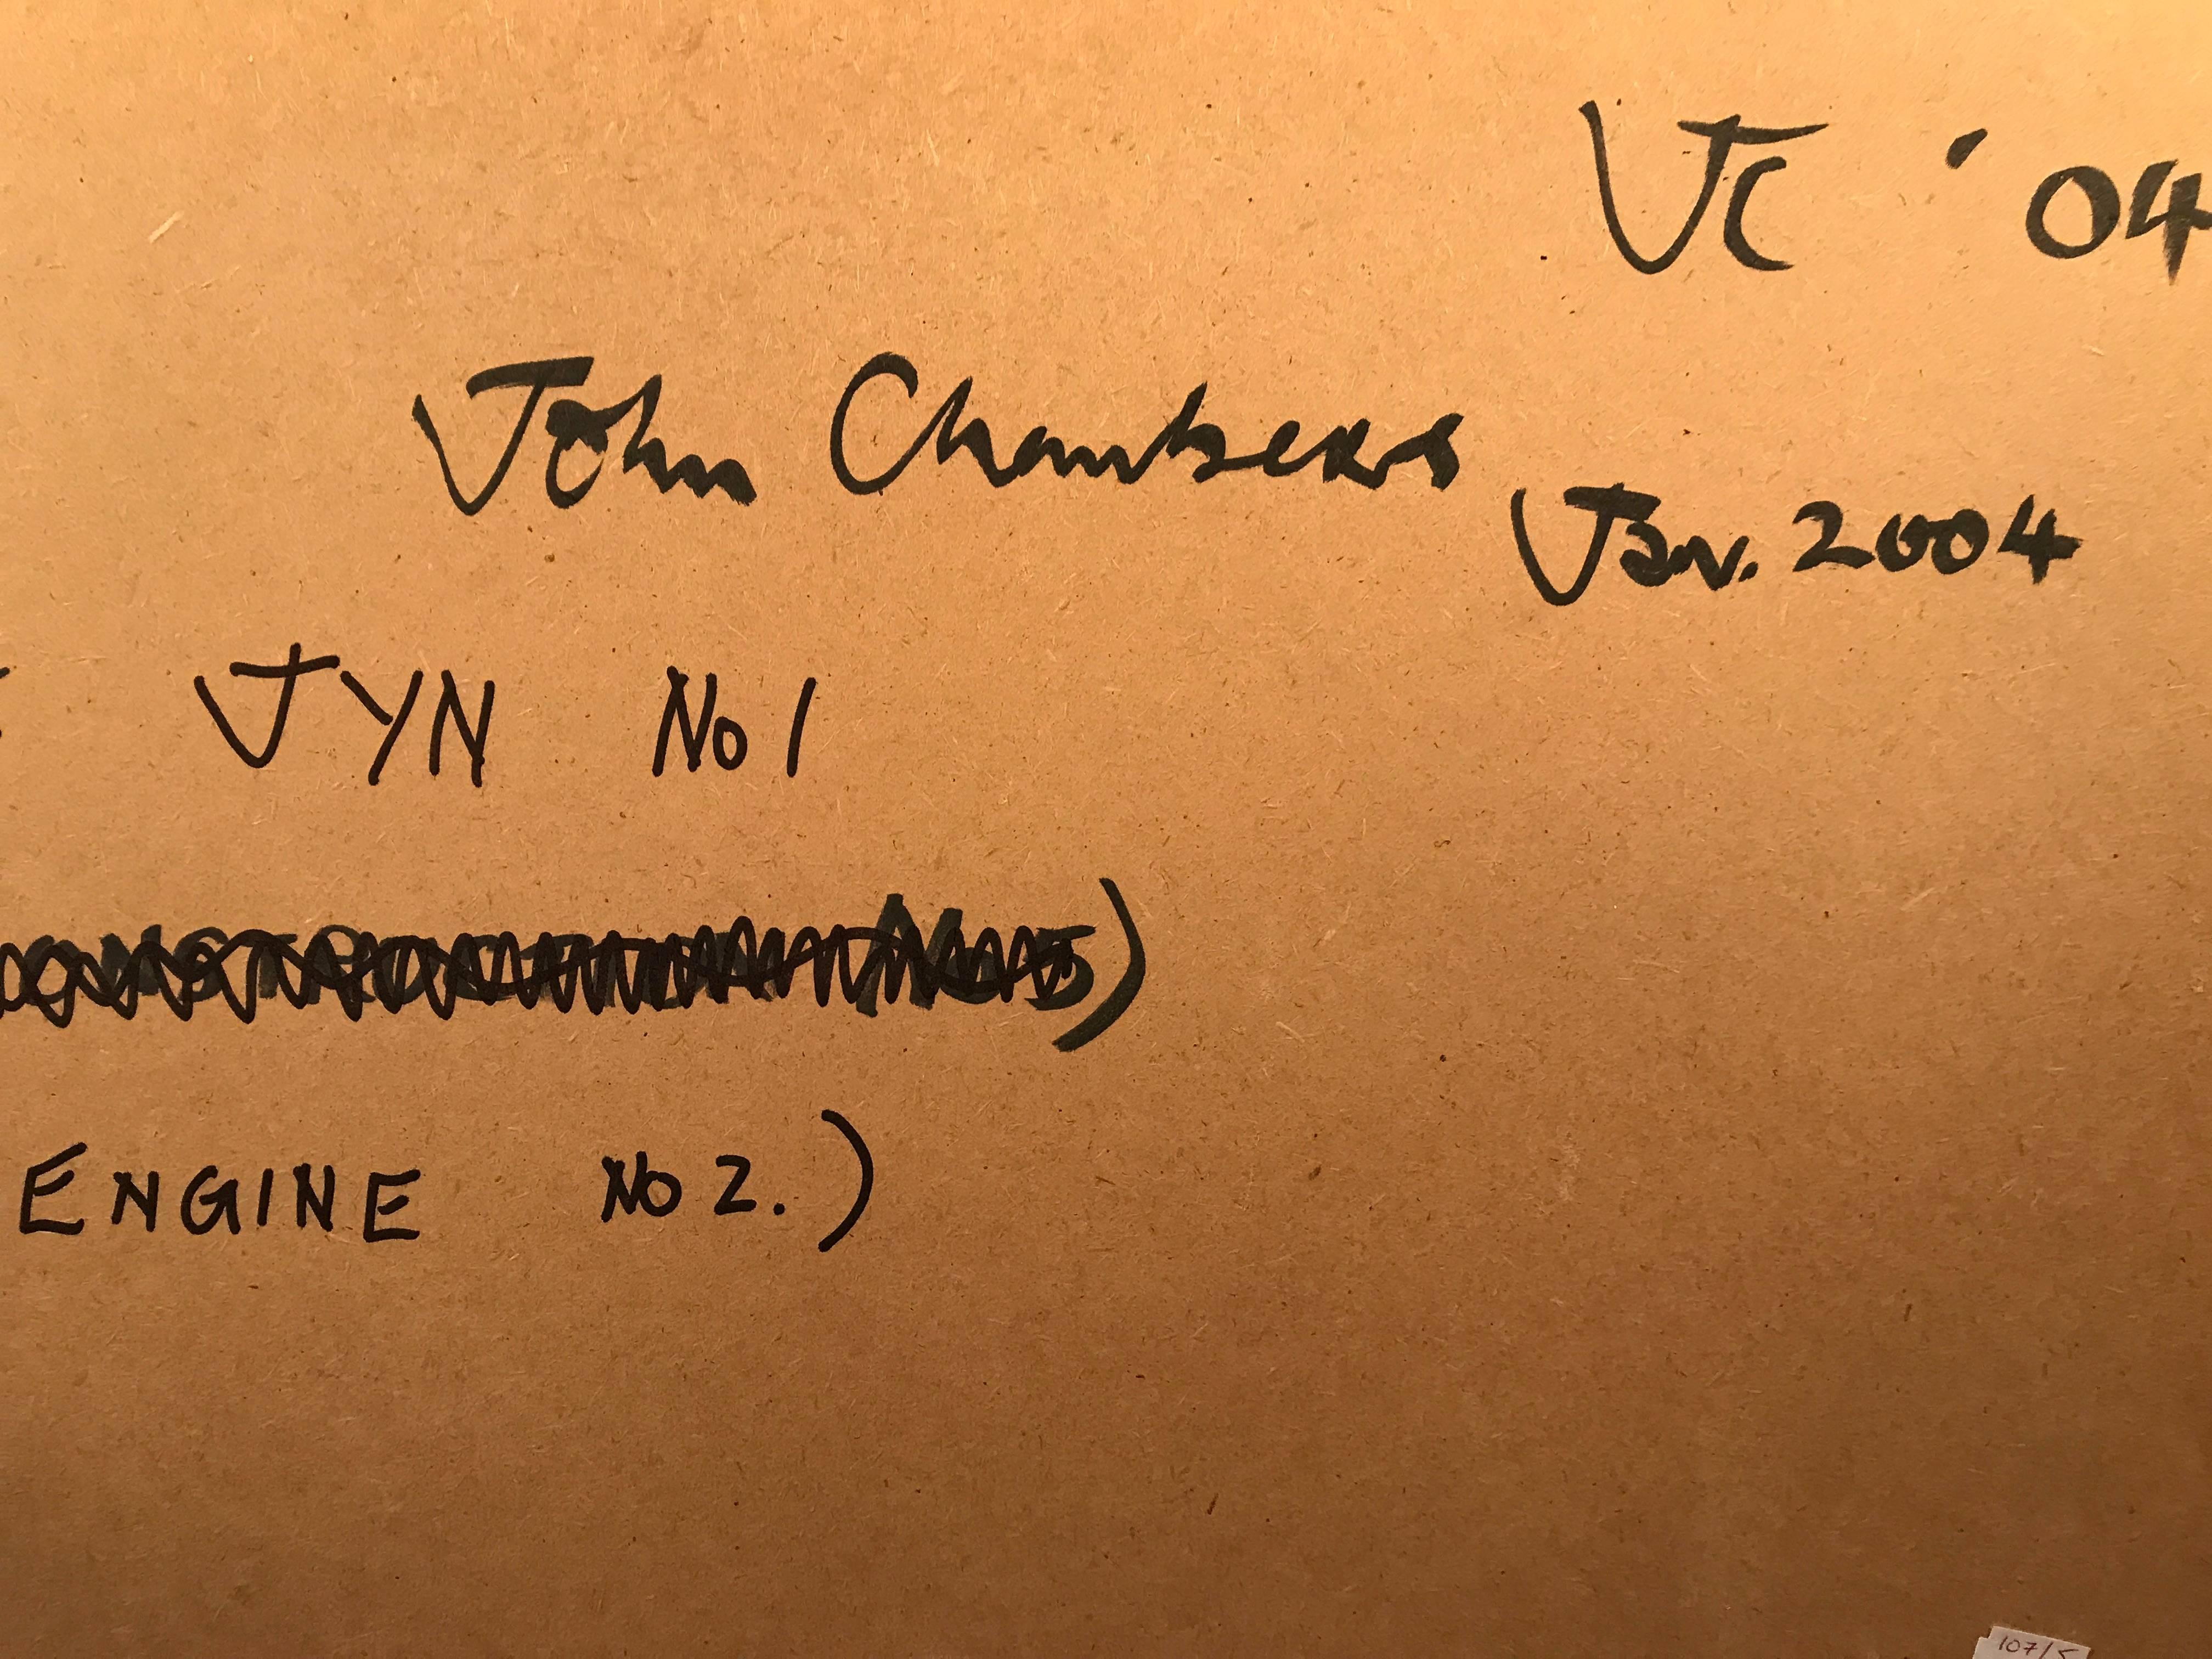 JC '04
John Chambers
Jan. 2004
JYN No 1
ENGINE No 2.)